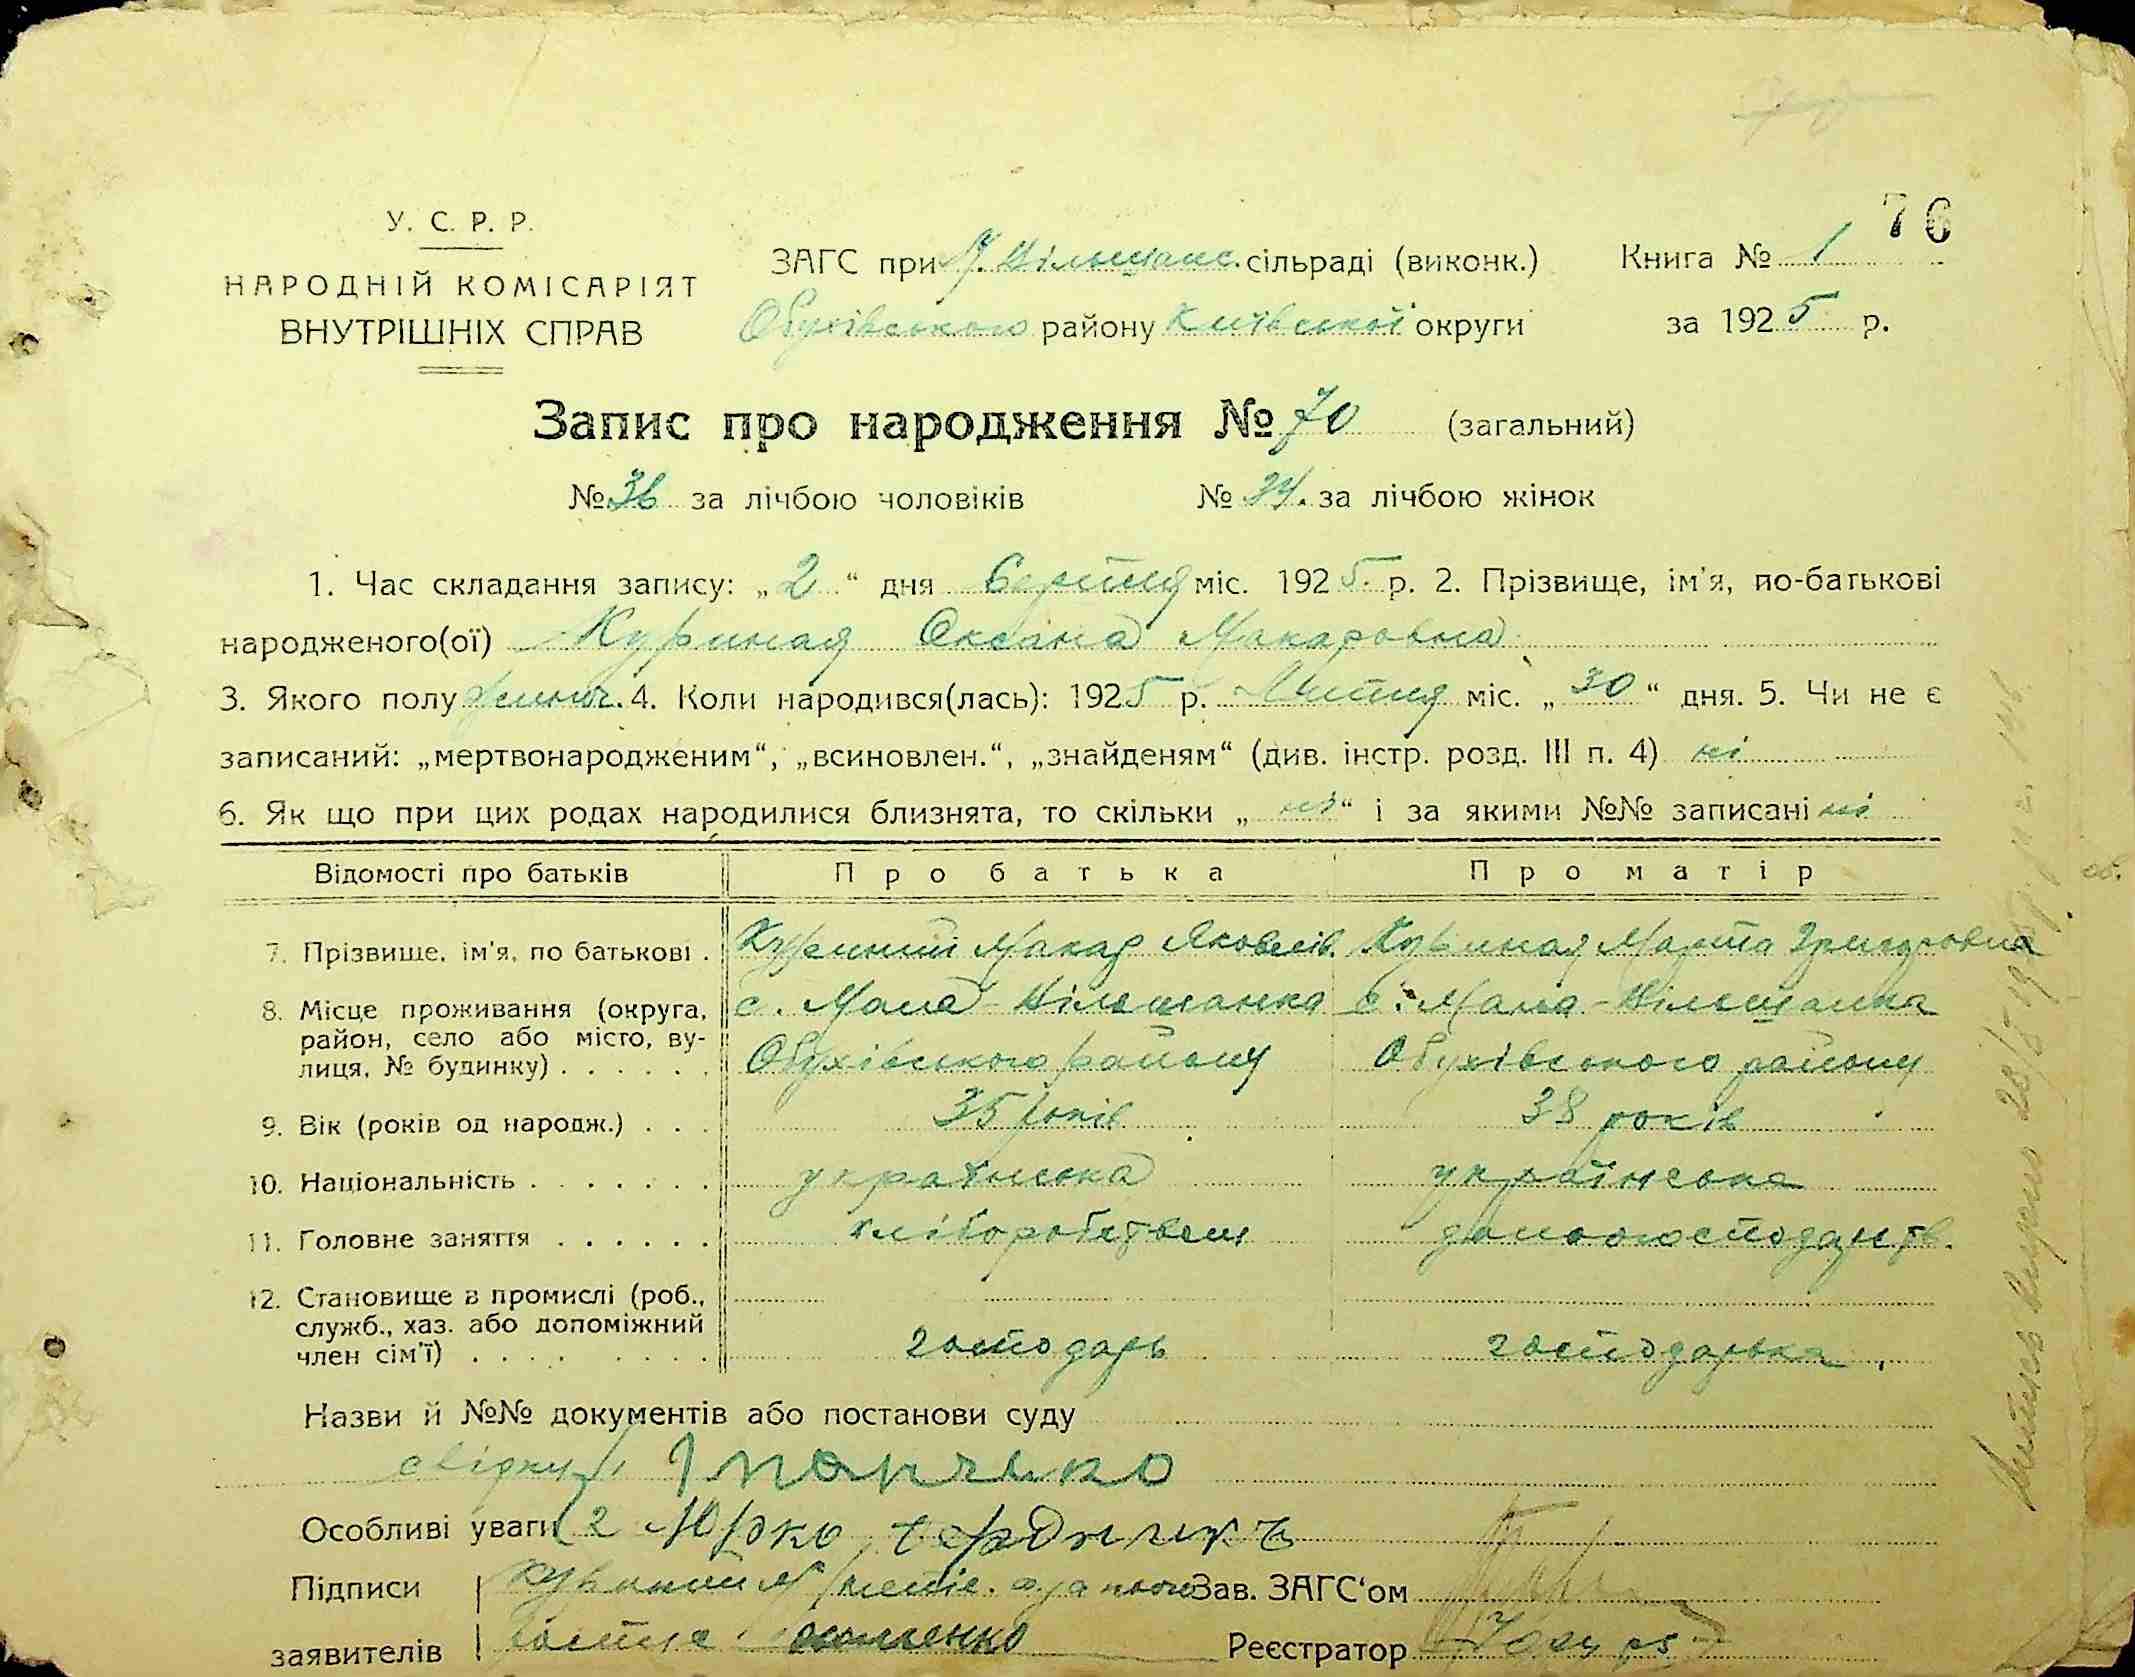 76
У. С. Р. Р.
НАРОДНІЙ КОМІСАРІЯТ
ВНУТРІШНІХ СПРАВ
ЗАГС при М. Вільшанс. сільраді (виконк.)
Обухівського району Київської округи
Книга № 1
за 1925 р.
Запис про народження № 70 (загальний)
№ 36 за лічбою чоловіків № 34. за лічбою жінок
1. Час складання запису: „ 2 “ дня Серпня міс. 1925 р. 2. Прізвище, ім'я, по-батькові
народженого(ої) Куриная Оксана Макаровна
3. Якого полу жіноч. 4. Коли народився(лась): 1925 р. Липня міс. „ 30 “ дня. 5. Чи не є
записаний: „мертвонародженим“, „всиновлен.“, „знайденям“ (див. інстр. розд. III п. 4) ні
6. Як що при цих родах народилися близнята, то скільки „ ні “ і за якими №№ записані ні
Відомості про батьків Про батька Про матір
7. Прізвище, ім'я, по батькові . Куриний Макар Яковлів. Куриная Марта Григоровна
8. Місце проживання (округа, с. Мала-Вільшанка с. Мала-Вільшанка
район, село або місто, ву-
лиця, № будинку) . . . . . . Обухівського району Обухівського району
9. Вік (років од народж.) . . . 35 років 38 років
10. Національність . . . . . . . українська українська
11. Головне заняття . . . . . . хліборобством домогосподарств.
12. Становище в промислі (роб.,
служб., хаз. або допоміжний
член сім'ї) . . . . . . . . . господарь господарька
Назви й №№ документів або постанови суду
свідки
Особливі уваги 2 Юрко
Підписи Куриний М Зав. ЗАГС'ом
заявителів Реєстратор